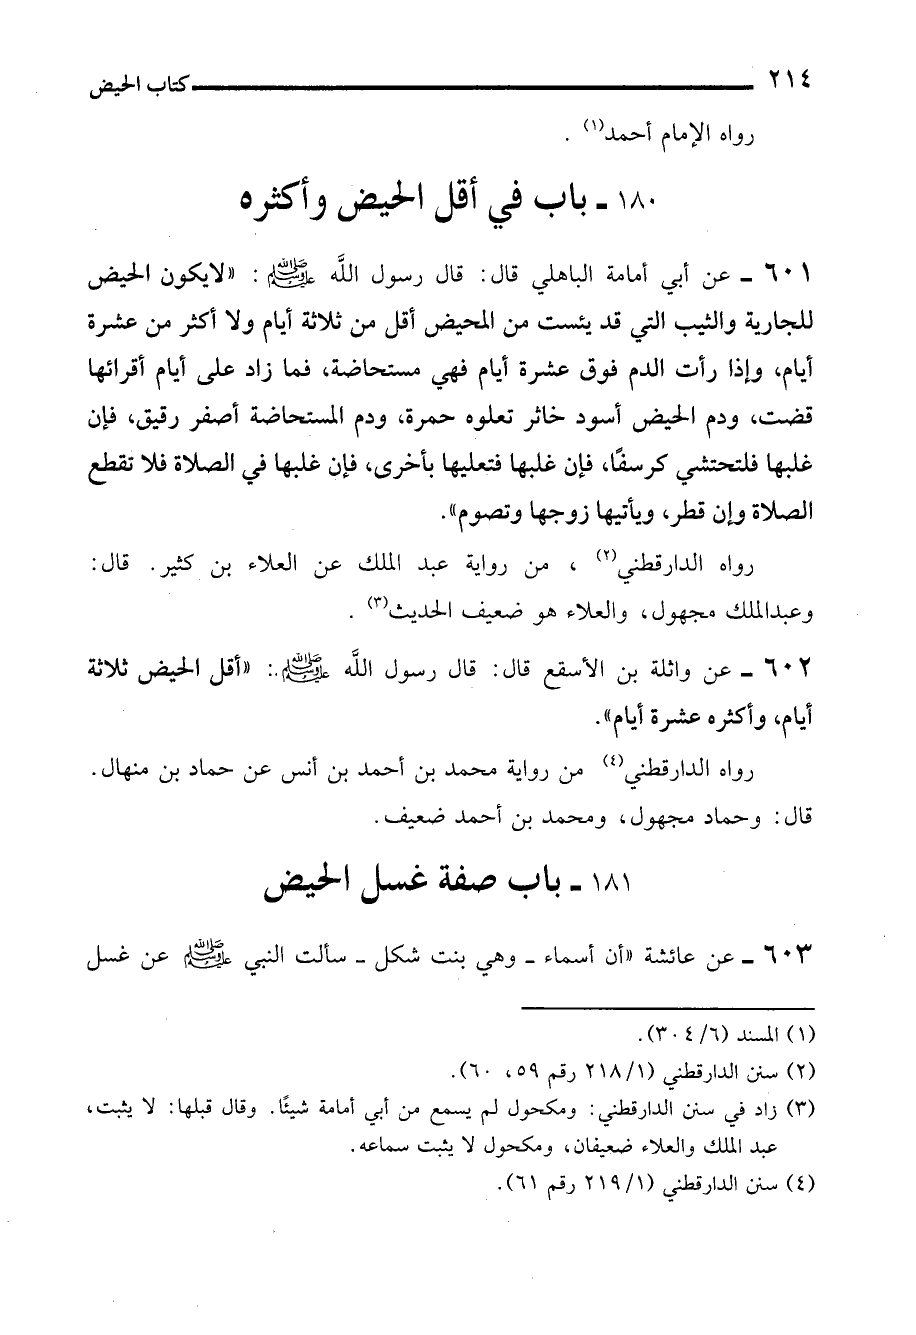 ٢١٤ كتاب الحيض
رواه الإمام أحمد(١) .
١٨٠ ـ باب في أقل الحيض وأكثره
٦٠١ ـ عن أبي أمامة الباهلي قال: قال رسول اللَّه ﷺ: «لايكون الحيض
للجارية والثيب التي قد يئست من المحيض أقل من ثلاثة أيام ولا أكثر من عشرة
أيام، وإذا رأت الدم فوق عشرة أيام فهي مستحاضة، فما زاد على أيام أقرائها
قضت، ودم الحيض أسود خاثر تعلوه حمرة، ودم المستحاضة أصفر رقيق، فإن
غلبها فلتحتشي كرسفًا، فإن غلبها فتعليها بأخرى، فإن غلبها في الصلاة فلا تقطع
الصلاة وإن قطر، ويأتيها زوجها وتصوم».
رواه الدارقطني(٢) ، من رواية عبد الملك عن العلاء بن كثير. قال:
وعبدالملك مجهول، والعلاء هو ضعيف الحديث(٣) .
٦٠٢ ـ عن واثلة بن الأسقع قال: قال رسول اللَّه ﷺ: «أقل الحيض ثلاثة
أيام، وأكثره عشرة أيام».
رواه الدارقطني(٤) من رواية محمد بن أحمد بن أنس عن حماد بن منهال.
قال: وحماد مجهول، ومحمد بن أحمد ضعيف.
١٨١ ـ باب صفة غسل الحيض
٦٠٣ ـ عن عائشة «أن أسماء ـ وهي بنت شكل ـ سألت النبي ﷺ عن غسل
(١) المسند (٣٠٤/٦).
(٢) سنن الدارقطني (٢١٨/١ رقم ٥٩، ٦٠).
(٣) زاد في سنن الدارقطني: ومكحول لم يسمع من أبي أمامة شيئًا. وقال قبلها: لا يثبت،
عبد الملك والعلاء ضعيفان، ومكحول لا يثبت سماعه.
(٤) سنن الدارقطني (٢١٩/١ رقم ٦١).